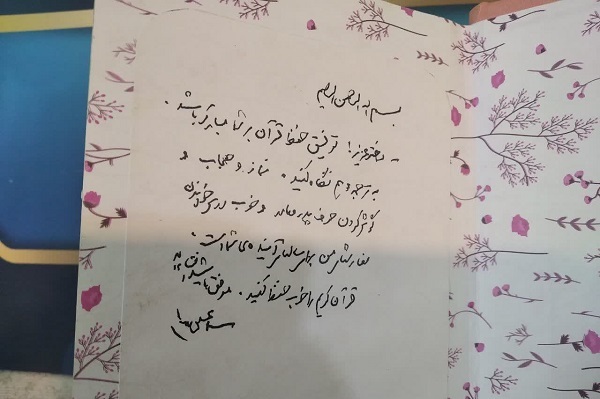 بسم الله الرحمن الرحیم
دختر عزیز! توفیق حفظ قرآن بر شما مبارک باشد.
به ترجمه هم نگاه کنید. نماز و حجاب و
گوش کردن حرف پدر و مادر و خوب درس خواندن
سفارش من برای سالهای آینده‌ی شماست.
قرآن کریم را خوب حفظ کنید. موفق باشید